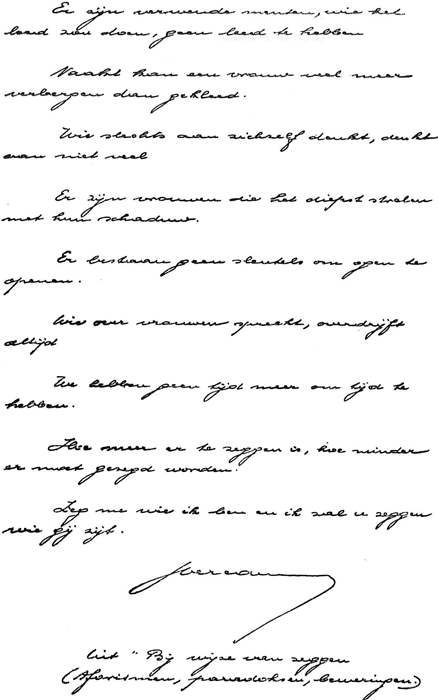 Er zijn verwende mensen, wie het
leed zou doen, geen leed te hebben
Naakt kan een vrouw veel meer
verbergen dan gekleed.
Wie slechts aan zichzelf denkt, denkt
aan niet veel
Er zijn vrouwen die het diepst stralen
met hun schaduw.
Er bestaan geen sleutels om open te
openen.
Wie over vrouwen spreekt, overdrijft
altijd
We hebben geen tijd meer om tijd te
hebben.
Hoe meer er te zeggen is, hoe minder
er moet gezegd worden.
Zeg me wie ik ben en ik zal u zeggen
wie gij zijt.
Uit "Bij wijze van zeggen
(Aforismen, paradoksen, beweringen)